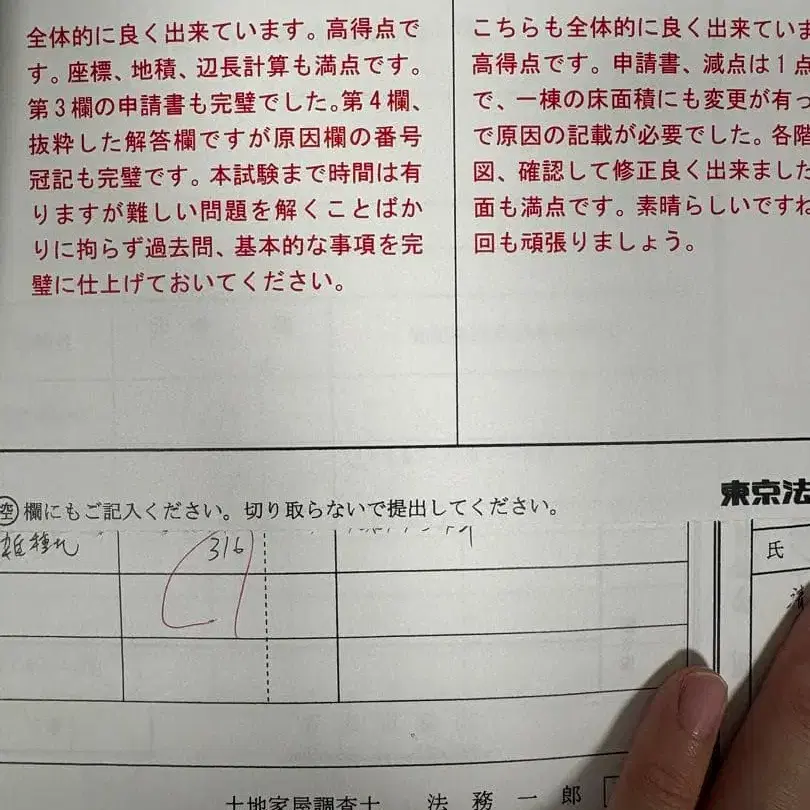 全体的に良く出来ています。高得点で
す。座標、地積、辺長計算も満点です。
第3欄の申請書も完璧でした。第4欄、
抜粋した解答欄ですが原因欄の番号
冠記も完璧です。本試験まで時間は有
りますが難しい問題を解くことばか
りに拘らず過去問、基本的な事項を完
璧に仕上げておいてください。
こちらも全体的に良く出来ていま
高得点です。申請書、減点は1点
で、一棟の床面積にも変更が有っ
で原因の記載が必要でした。各階
図、確認して修正良く出来ました
面も満点です。素晴らしいですね
回も頑張りましょう。
空欄にもご記入ください。切り取らないで提出してください。
東京法
雑種地
316
氏
土地家屋調査士 法務一郎